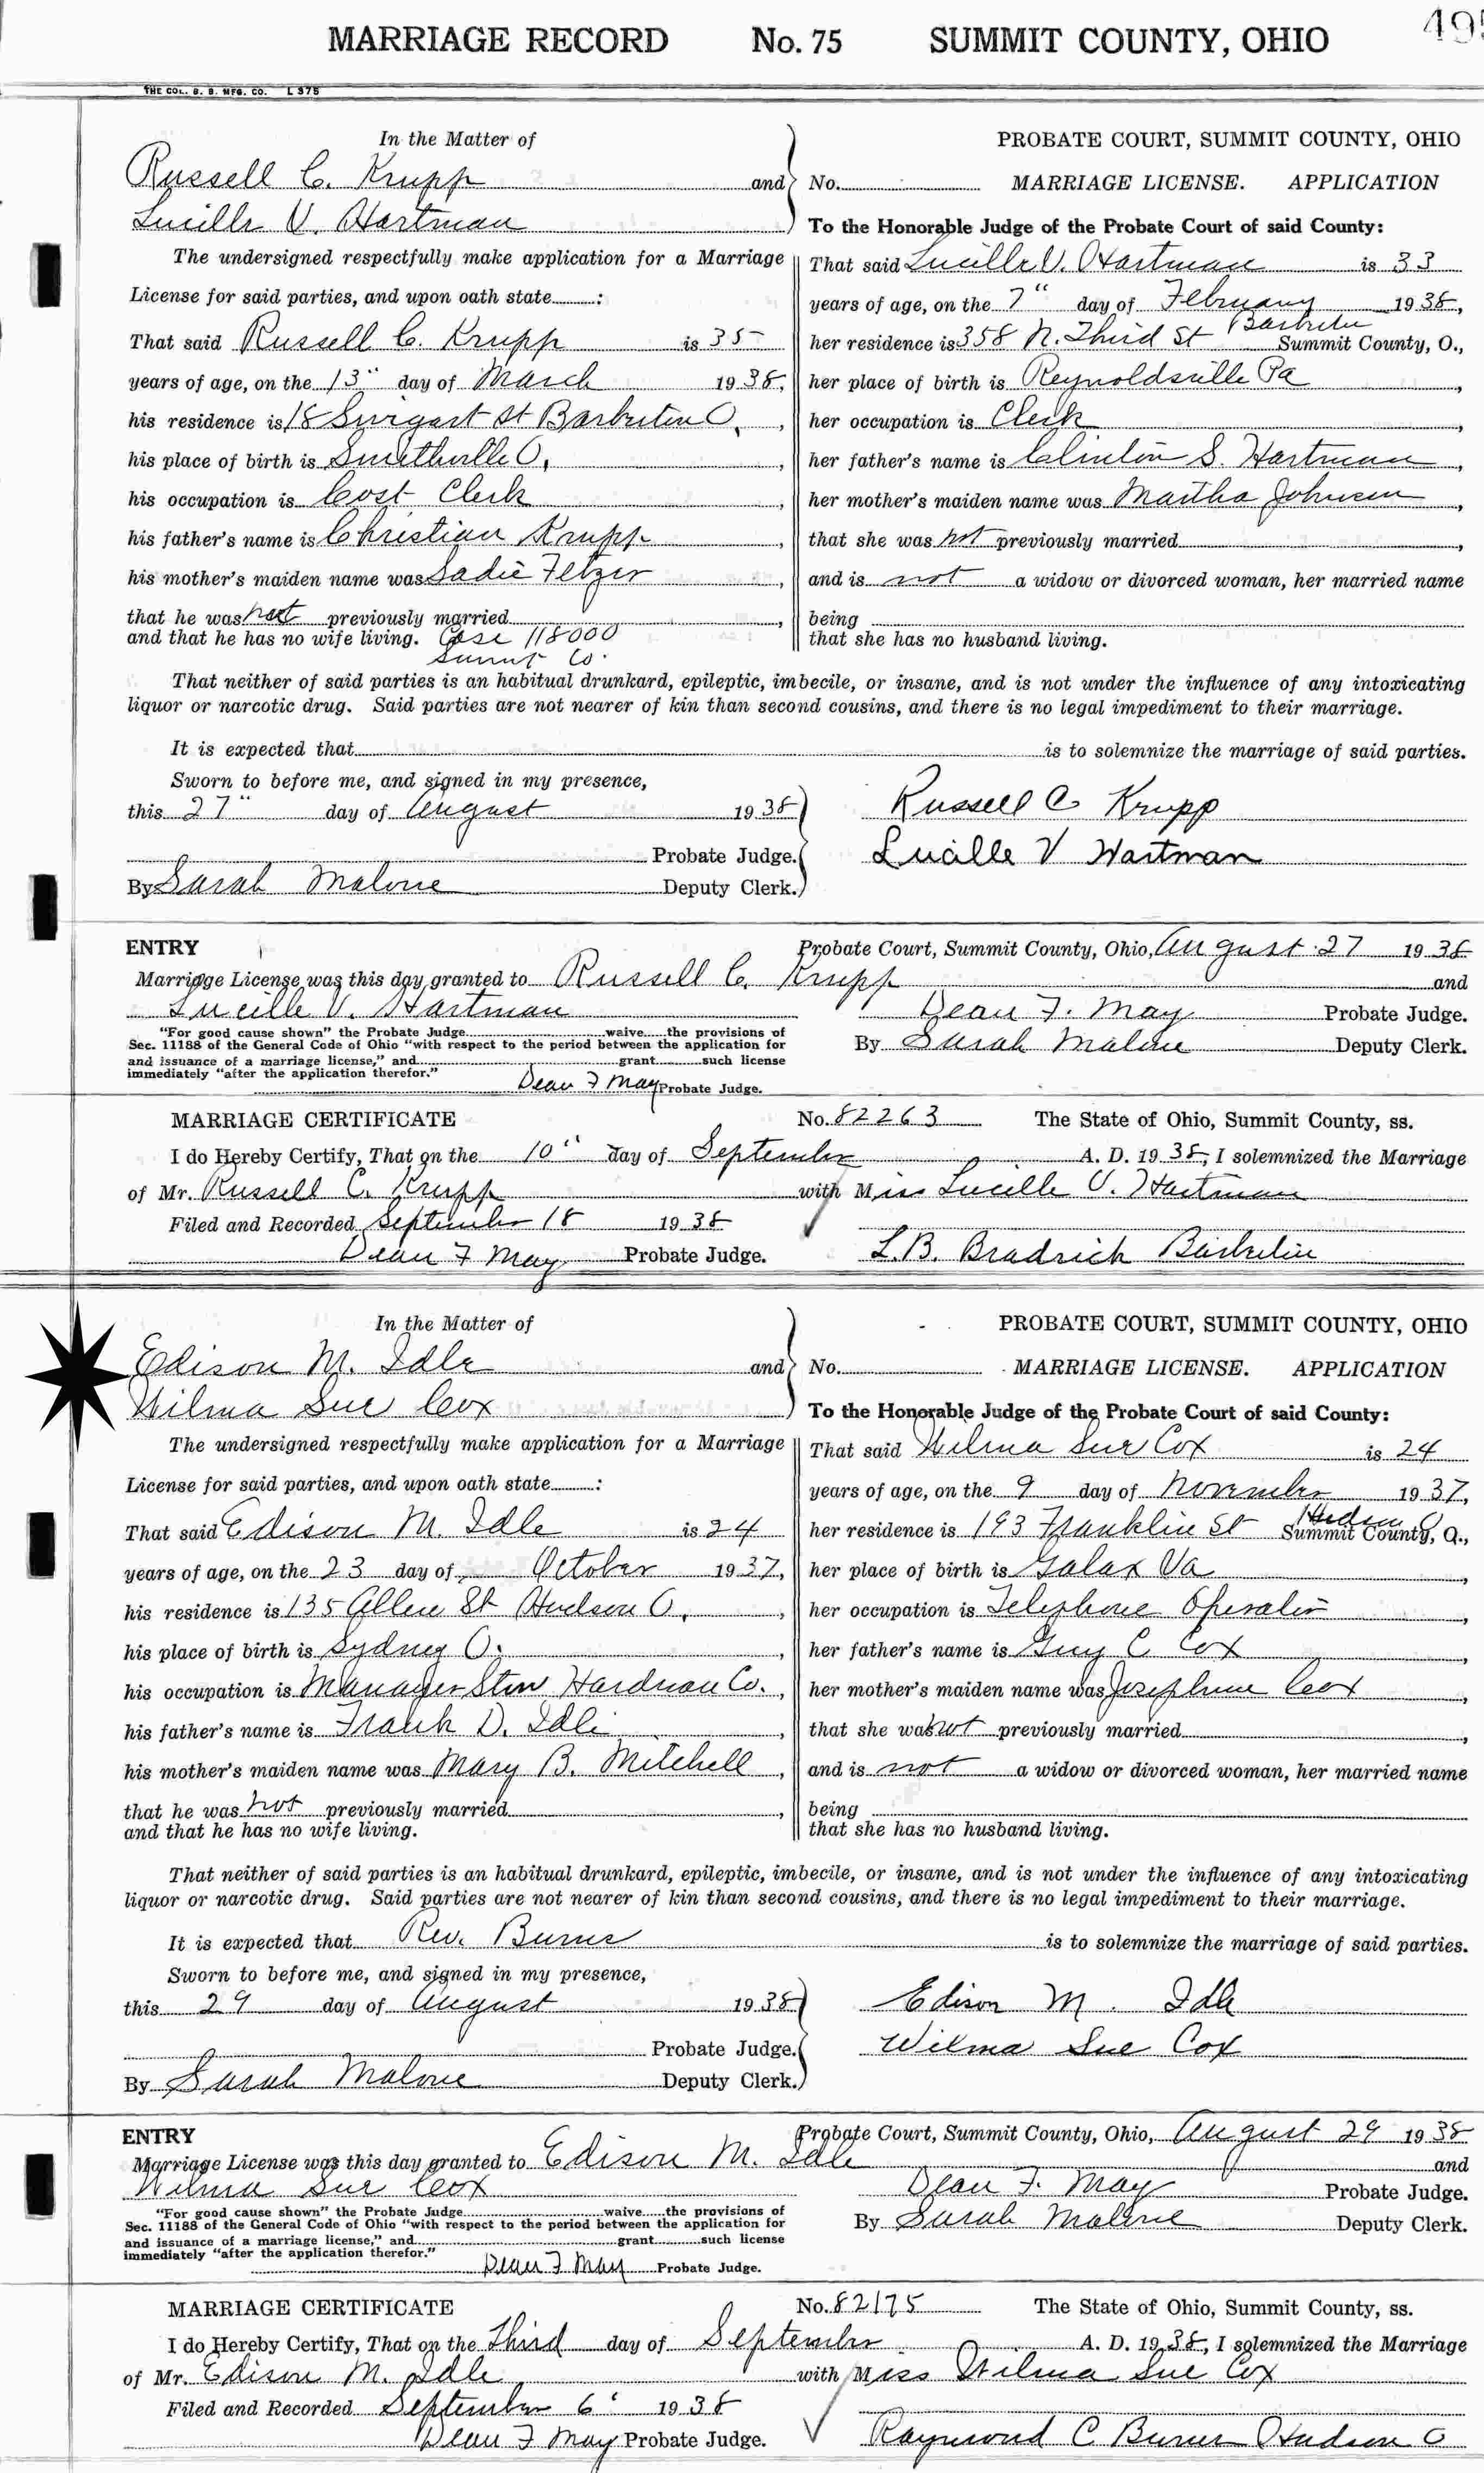 MARRIAGE RECORD No. 75 SUMMIT COUNTY, OHIO 495
THE COL. B. B. MFG. CO. L 375
In the Matter of
Russell C. Krupp and
Lucille V. Hartman
The undersigned respectfully make application for a Marriage
License for said parties, and upon oath state :
That said Russell C. Krupp is 35
years of age, on the 13" day of March 1938,
his residence is 18 Swigart St Barberton O,
his place of birth is Smithville O,
his occupation is Cost Clerk
his father's name is Christian Krupp
his mother's maiden name was Sadie Fetzer
that he was not previously married
and that he has no wife living. Case 118000
Summit Co.
PROBATE COURT, SUMMIT COUNTY, OHIO
No. MARRIAGE LICENSE. APPLICATION
To the Honorable Judge of the Probate Court of said County:
That said Lucille V. Hartman is 33
years of age, on the 7" day of February 1938,
her residence is 358 N. Third St Barberton Summit County, O.,
her place of birth is Reynoldsville Pa
her occupation is Clerk
her father's name is Clinton S. Hartman
her mother's maiden name was Martha Johnson
that she was not previously married
and is not a widow or divorced woman, her married name
being
that she has no husband living.
That neither of said parties is an habitual drunkard, epileptic, imbecile, or insane, and is not under the influence of any intoxicating
liquor or narcotic drug. Said parties are not nearer of kin than second cousins, and there is no legal impediment to their marriage.
It is expected that is to solemnize the marriage of said parties.
Sworn to before me, and signed in my presence,
this 27" day of August 1938
Probate Judge.
By Sarah Malone Deputy Clerk.
Russell C Krupp
Lucille V Hartman
ENTRY Probate Court, Summit County, Ohio, August 27 1938
Marriage License was this day granted to Russell C. Krupp and
Lucille V. Hartman
"For good cause shown" the Probate Judge waive the provisions of
Sec. 11188 of the General Code of Ohio "with respect to the period between the application for
and issuance of a marriage license," and grant such license
immediately "after the application therefor."
Dean F May Probate Judge.
Dean F. May Probate Judge.
By Sarah Malone Deputy Clerk.
MARRIAGE CERTIFICATE No. 82263 The State of Ohio, Summit County, ss.
I do Hereby Certify, That on the 10" day of September A. D. 1938, I solemnized the Marriage
of Mr. Russell C. Krupp with Miss Lucille V. Hartman
Filed and Recorded September 18 1938
Dean F May Probate Judge. L.B. Bradrick Barberton
In the Matter of
Edison M. Idle and
Wilma Sue Cox
The undersigned respectfully make application for a Marriage
License for said parties, and upon oath state :
That said Edison M. Idle is 24
years of age, on the 23 day of October 1937,
his residence is 135 Allen St Hudson O,
his place of birth is Sydney O.
his occupation is Manager Stow Hardware Co.,
his father's name is Frank D. Idle
his mother's maiden name was Mary B. Mitchell
that he was not previously married
and that he has no wife living.
PROBATE COURT, SUMMIT COUNTY, OHIO
No. MARRIAGE LICENSE. APPLICATION
To the Honorable Judge of the Probate Court of said County:
That said Wilma Sue Cox is 24
years of age, on the 9 day of November 1937,
her residence is 193 Franklin St Hudson O Summit County, O.,
her place of birth is Galax Va
her occupation is Telephone Operator
her father's name is Guy C Cox
her mother's maiden name was Josephine Cox
that she was not previously married
and is not a widow or divorced woman, her married name
being
that she has no husband living.
That neither of said parties is an habitual drunkard, epileptic, imbecile, or insane, and is not under the influence of any intoxicating
liquor or narcotic drug. Said parties are not nearer of kin than second cousins, and there is no legal impediment to their marriage.
It is expected that Rev. Burns is to solemnize the marriage of said parties.
Sworn to before me, and signed in my presence,
this 29 day of August 1938
Probate Judge.
By Sarah Malone Deputy Clerk.
Edison M. Idle
Wilma Sue Cox
ENTRY Probate Court, Summit County, Ohio, August 29 1938
Marriage License was this day granted to Edison M. Idle and
Wilma Sue Cox
"For good cause shown" the Probate Judge waive the provisions of
Sec. 11188 of the General Code of Ohio "with respect to the period between the application for
and issuance of a marriage license," and grant such license
immediately "after the application therefor."
Dean F May Probate Judge.
Dean F. May Probate Judge.
By Sarah Malone Deputy Clerk.
MARRIAGE CERTIFICATE No. 82175 The State of Ohio, Summit County, ss.
I do Hereby Certify, That on the Third day of September A. D. 1938, I solemnized the Marriage
of Mr. Edison M. Idle with Miss Wilma Sue Cox
Filed and Recorded September 6 1938
Dean F May Probate Judge. Raymond C Burns Hudson O